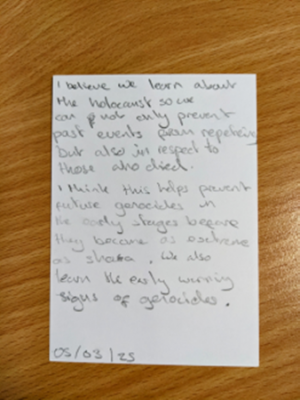 I believe we learn about
the holocaust so we
can not only prevent
past events from repeteing
but also in respect to
those who died.
I think this helps prevent
future genocides in
the early stages before
they become as extreme
as shoah. We also
learn the early warning
signs of genocides.
05/03/25